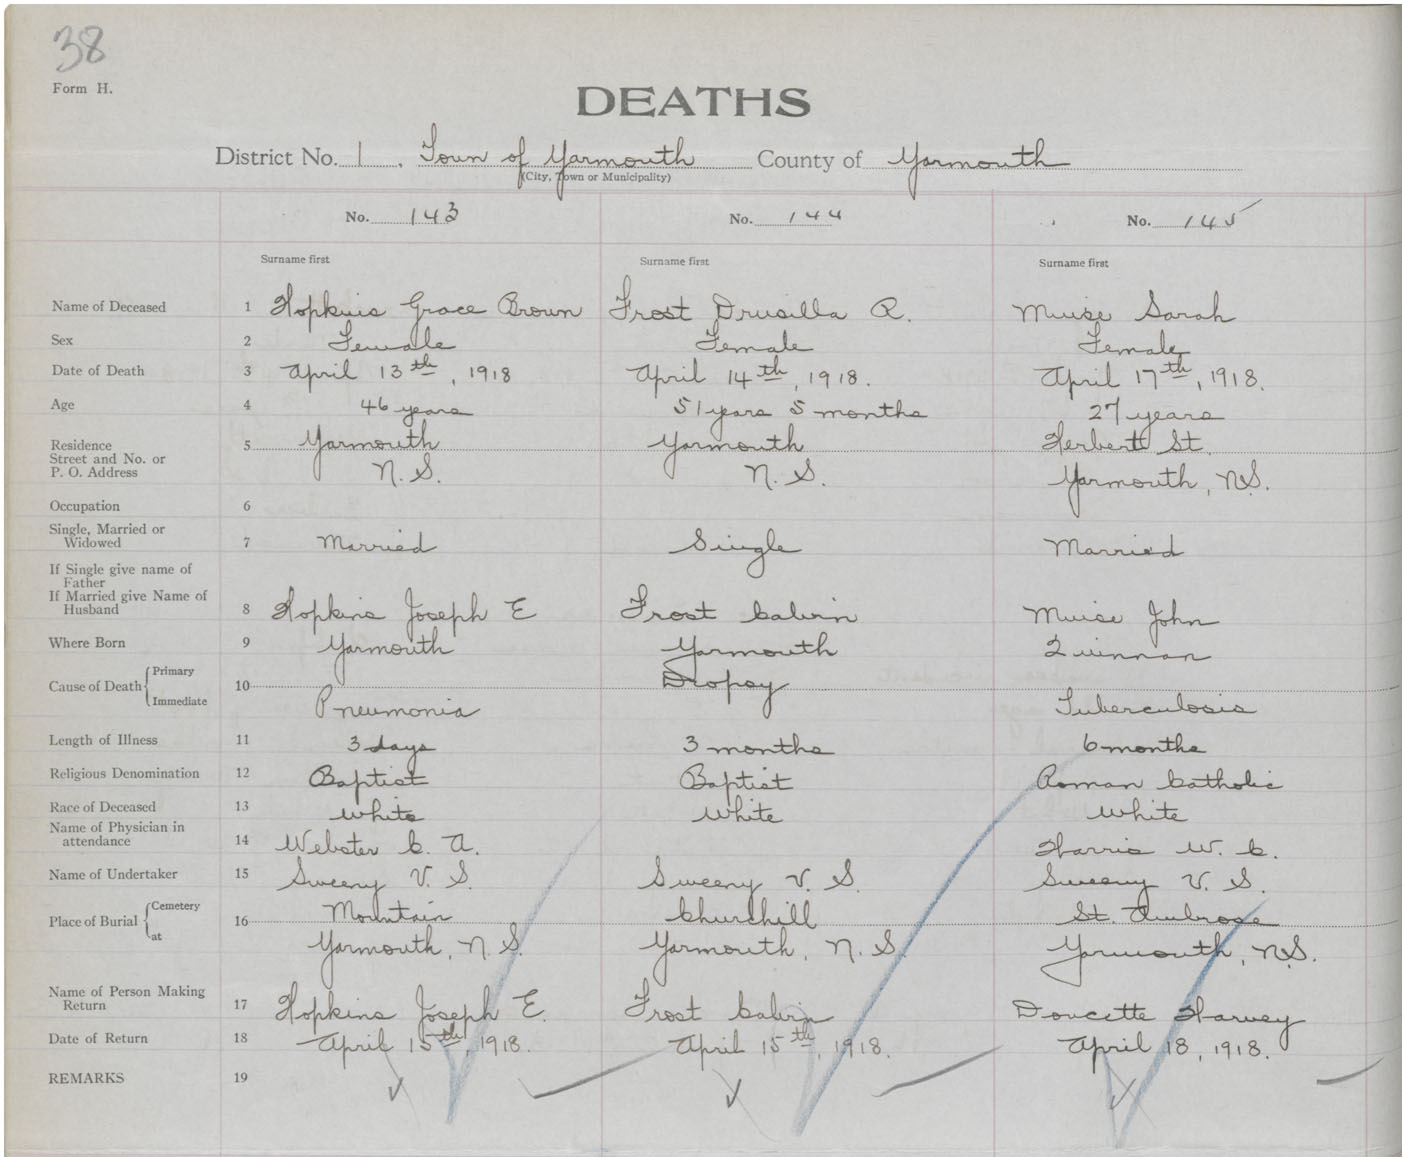 38
Form H.
DEATHS
District No. 1, Town of Yarmouth County of Yarmouth
(City, Town or Municipality)
No. 143 No. 144 No. 145
Surname first Surname first Surname first
Name of Deceased 1 Hopkins Grace Brown Frost Drusilla R. Muise Sarah
Sex 2 Female Female Female
Date of Death 3 April 13th, 1918 April 14th, 1918. April 17th, 1918.
Age 4 46 years 51 years 5 months 27 years
Residence 5 Yarmouth Yarmouth Herbert St.
Street and No. or
P. O. Address N. S. N. S. Yarmouth, N.S.
Occupation 6
Single, Married or
Widowed 7 Married Single Married
If Single give name of
Father
If Married give Name of
Husband 8 Hopkins Joseph E Frost Calvin Muise John
Where Born 9 Yarmouth Yarmouth Quinnan
Cause of Death Primary 10 Dropsy
Immediate Pneumonia Tuberculosis
Length of Illness 11 3 days 3 months 6 months
Religious Denomination 12 Baptist Baptist Roman Catholic
Race of Deceased 13 White White White
Name of Physician in
attendance 14 Webster C. A. Harris W. C.
Name of Undertaker 15 Sweeny V. S. Sweeny V. S. Sweeny V. S.
Place of Burial Cemetery 16 Mountain Churchill St. Ambrose
at Yarmouth, N. S. Yarmouth, N. S. Yarmouth, N.S.
Name of Person Making
Return 17 Hopkins Joseph E. Frost Calvin Doucette Harvey
Date of Return 18 April 15th, 1918. April 15th, 1918. April 18, 1918.
REMARKS 19